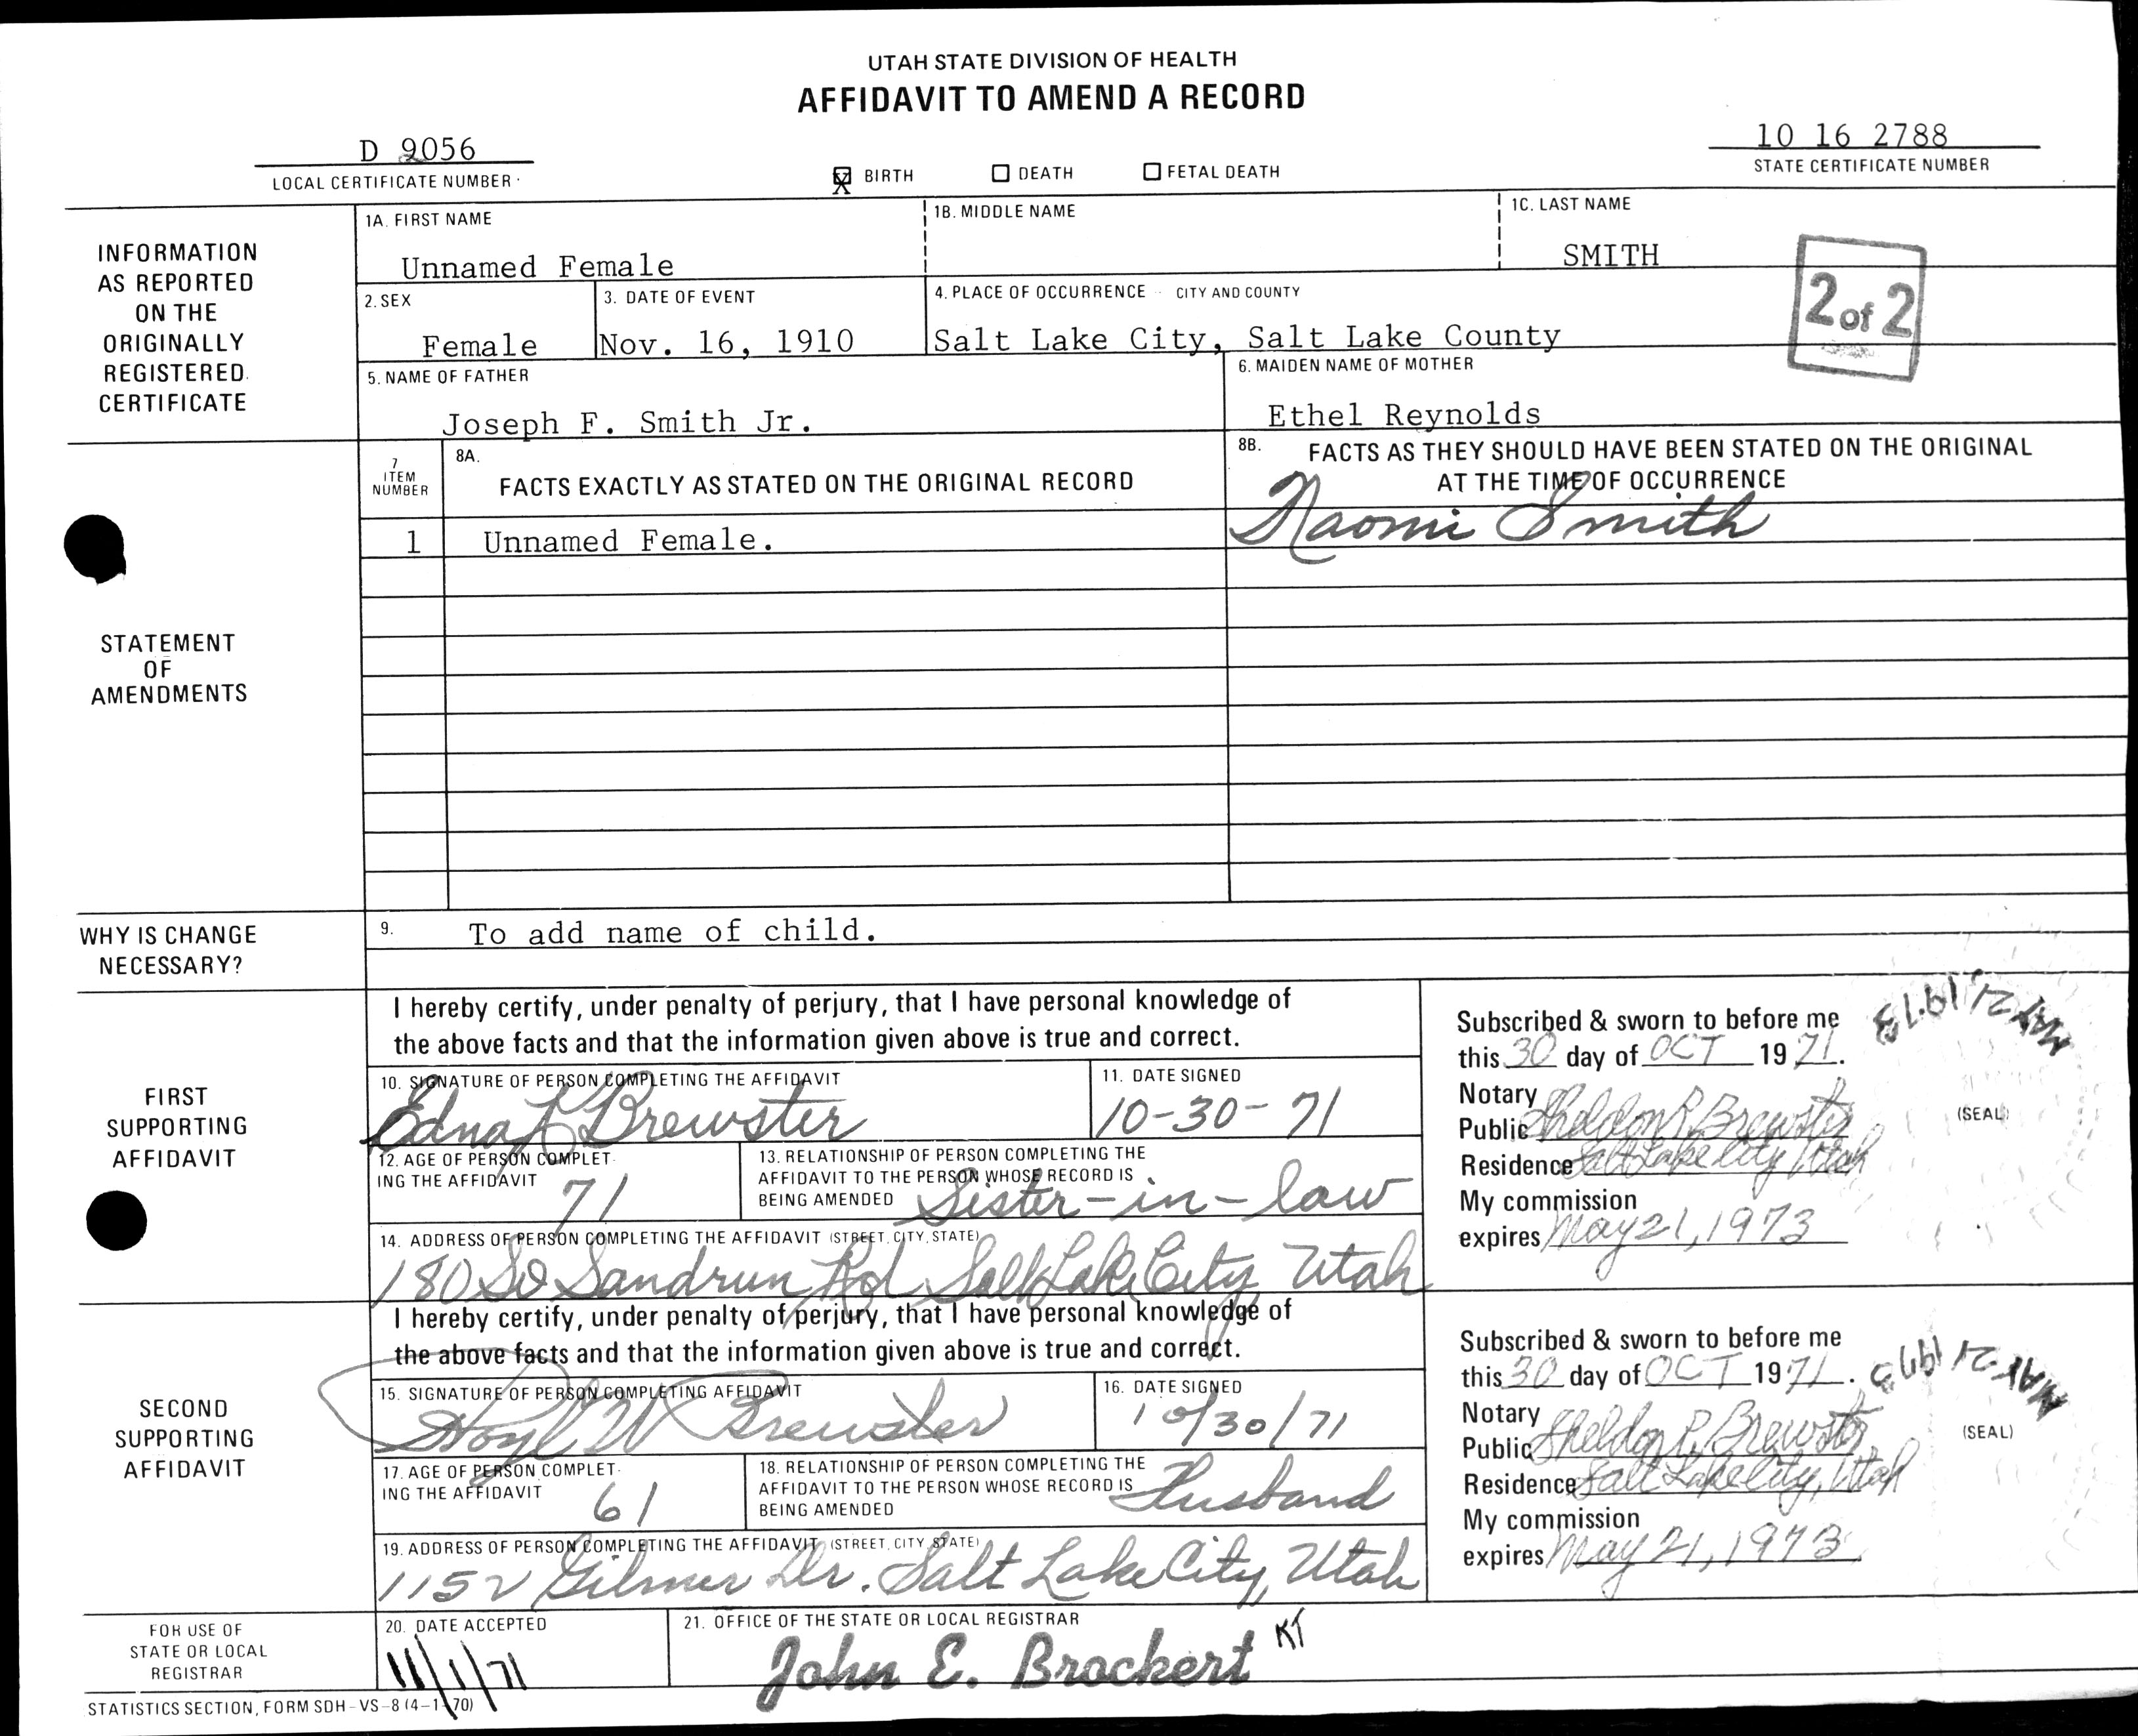 UTAH STATE DIVISION OF HEALTH
AFFIDAVIT TO AMEND A RECORD
D 9056
LOCAL CERTIFICATE NUMBER
X BIRTH DEATH FETAL DEATH
10 16 2788
STATE CERTIFICATE NUMBER
INFORMATION
AS REPORTED
ON THE
ORIGINALLY
REGISTERED
CERTIFICATE
1A. FIRST NAME
Unnamed Female
1B. MIDDLE NAME
1C. LAST NAME
SMITH
2 of 2
2. SEX
Female
3. DATE OF EVENT
Nov. 16, 1910
4. PLACE OF OCCURRENCE - CITY AND COUNTY
Salt Lake City, Salt Lake County
5. NAME OF FATHER
Joseph F. Smith Jr.
6. MAIDEN NAME OF MOTHER
Ethel Reynolds
STATEMENT
OF
AMENDMENTS
7
ITEM
NUMBER
8A.
FACTS EXACTLY AS STATED ON THE ORIGINAL RECORD
8B. FACTS AS THEY SHOULD HAVE BEEN STATED ON THE ORIGINAL
AT THE TIME OF OCCURRENCE
1 Unnamed Female.
Naomi Smith
WHY IS CHANGE
NECESSARY?
9. To add name of child.
FIRST
SUPPORTING
AFFIDAVIT
I hereby certify, under penalty of perjury, that I have personal knowledge of
the above facts and that the information given above is true and correct.
10. SIGNATURE OF PERSON COMPLETING THE AFFIDAVIT
Edna K Brewster
11. DATE SIGNED
10-30-71
12. AGE OF PERSON COMPLET-
ING THE AFFIDAVIT
71
13. RELATIONSHIP OF PERSON COMPLETING THE
AFFIDAVIT TO THE PERSON WHOSE RECORD IS
BEING AMENDED Sister-in-law
14. ADDRESS OF PERSON COMPLETING THE AFFIDAVIT (STREET, CITY, STATE)
180 So Sandrun Rd Salt Lake City Utah
Subscribed & sworn to before me
this 30 day of OCT 1971.
Notary
Public Sheldon R Brewster
Residence Salt Lake City Utah
My commission
expires May 21, 1973
(SEAL)
MAY 21, 1973
SECOND
SUPPORTING
AFFIDAVIT
I hereby certify, under penalty of perjury, that I have personal knowledge of
the above facts and that the information given above is true and correct.
15. SIGNATURE OF PERSON COMPLETING AFFIDAVIT
Hoyl W Brewster
16. DATE SIGNED
10/30/71
17. AGE OF PERSON COMPLET-
ING THE AFFIDAVIT
61
18. RELATIONSHIP OF PERSON COMPLETING THE
AFFIDAVIT TO THE PERSON WHOSE RECORD IS
BEING AMENDED Husband
19. ADDRESS OF PERSON COMPLETING THE AFFIDAVIT (STREET, CITY, STATE)
1152 Gilmer Dr. Salt Lake City, Utah
Subscribed & sworn to before me
this 30 day of OCT 1971.
Notary
Public Sheldon R. Brewster
Residence Salt Lake City, Utah
My commission
expires May 21, 1973
(SEAL)
MAY 21 1973
FOR USE OF
STATE OR LOCAL
REGISTRAR
20. DATE ACCEPTED
11/1/71
21. OFFICE OF THE STATE OR LOCAL REGISTRAR
John E. Brockert KT
STATISTICS SECTION, FORM SDH-VS-8 (4-1-70)